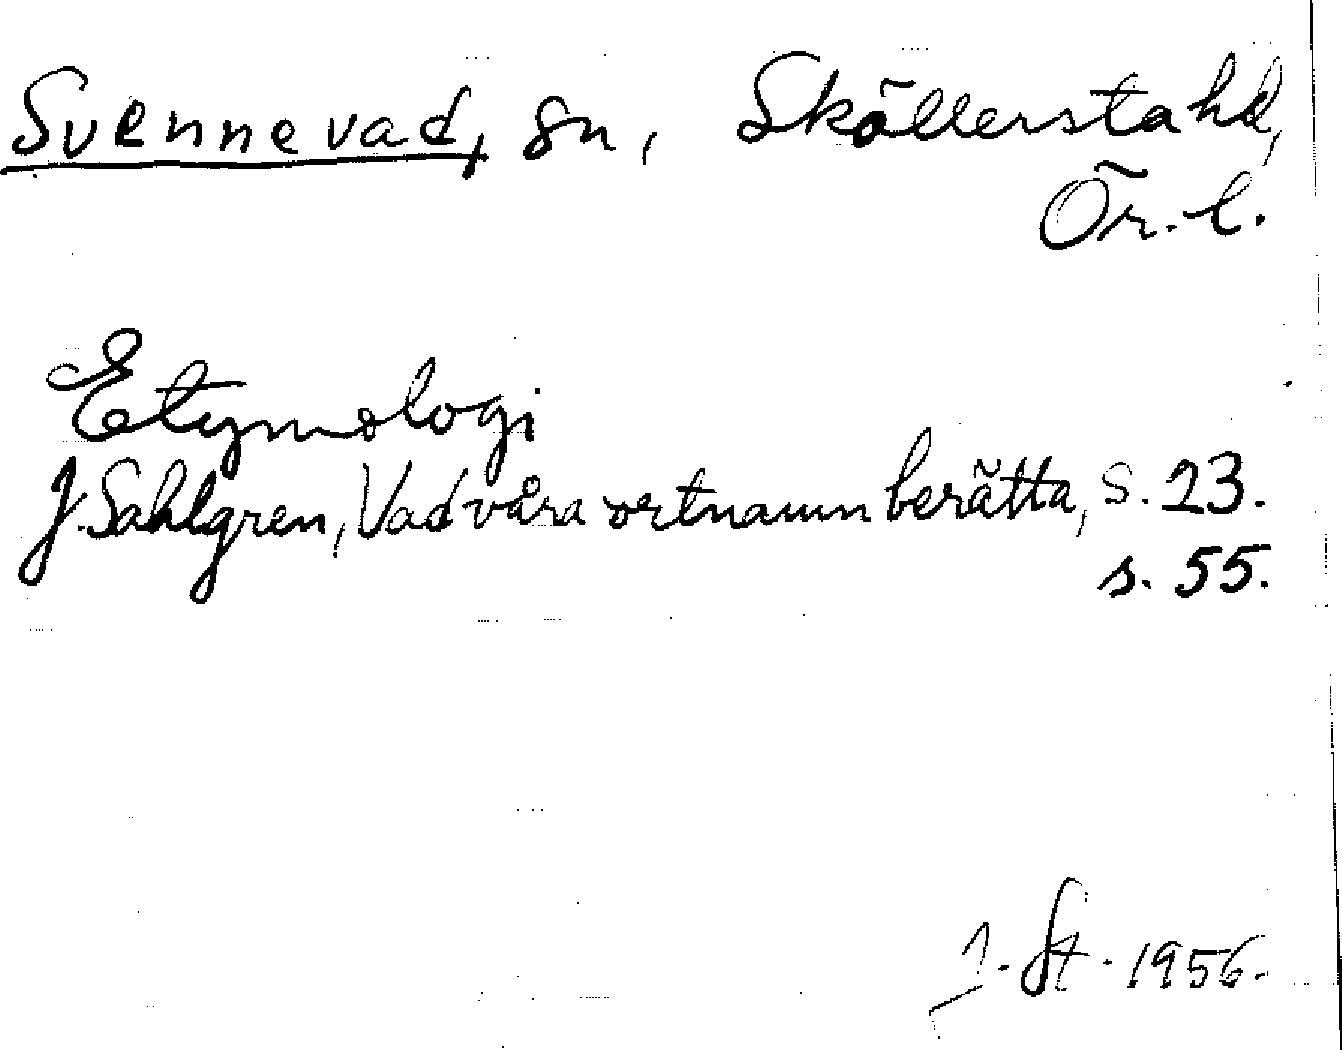 Svennevad, sn, Sköllersta hd,
Ör. l.
Etymologi
J. Sahlgren, Vad våra ortnamn berätta, s. 23.
s. 55.
St. 1956.